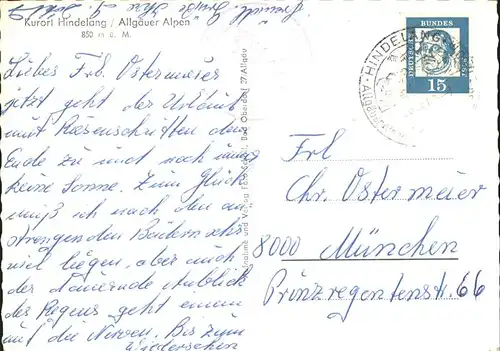 Kurort Hindelang / Allgäuer Alpen
850 m ü. M.
Liebes Frl. Ostermeier
jetzt geht der Urlaub
mit Riesenschritten dem
Ende zu und noch immer
keine Sonne. Zum Glück
muß ich nach den an-
strengenden Bädern sehr
viel liegen, aber auch
der dauernde Anblick
des Regens geht einem
auf die Nerven. Bis zum
Wiedersehen
freundl. Grüße Ihre
Bad Oberdorf 37/Allgäu
DEUTSCHE BUNDESPOST
15
HINDELANG
Frl
Chr. Ostermeier
8000 München
Prinzregentenstr. 66